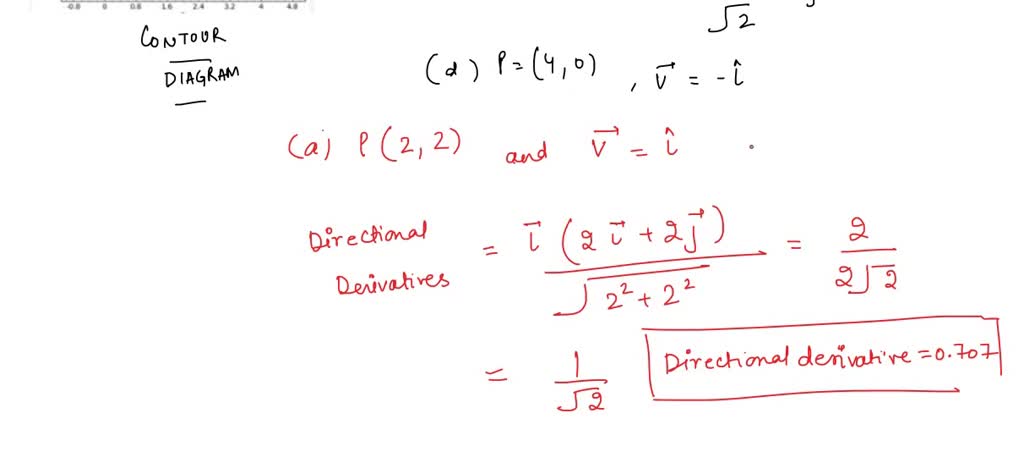 -0.8 0 0.8 1.6 2.4 3.2 4 4.8
√2
CONTOUR
DIAGRAM
(d) P=(4,0) , v⃗ = -î
(a) P(2,2) and v⃗ = î
Directional Derivatives = i⃗ (2i⃗ + 2j⃗) / √(2² + 2²) = 2 / 2√2
= 1/√2 Directional derivative = 0.707